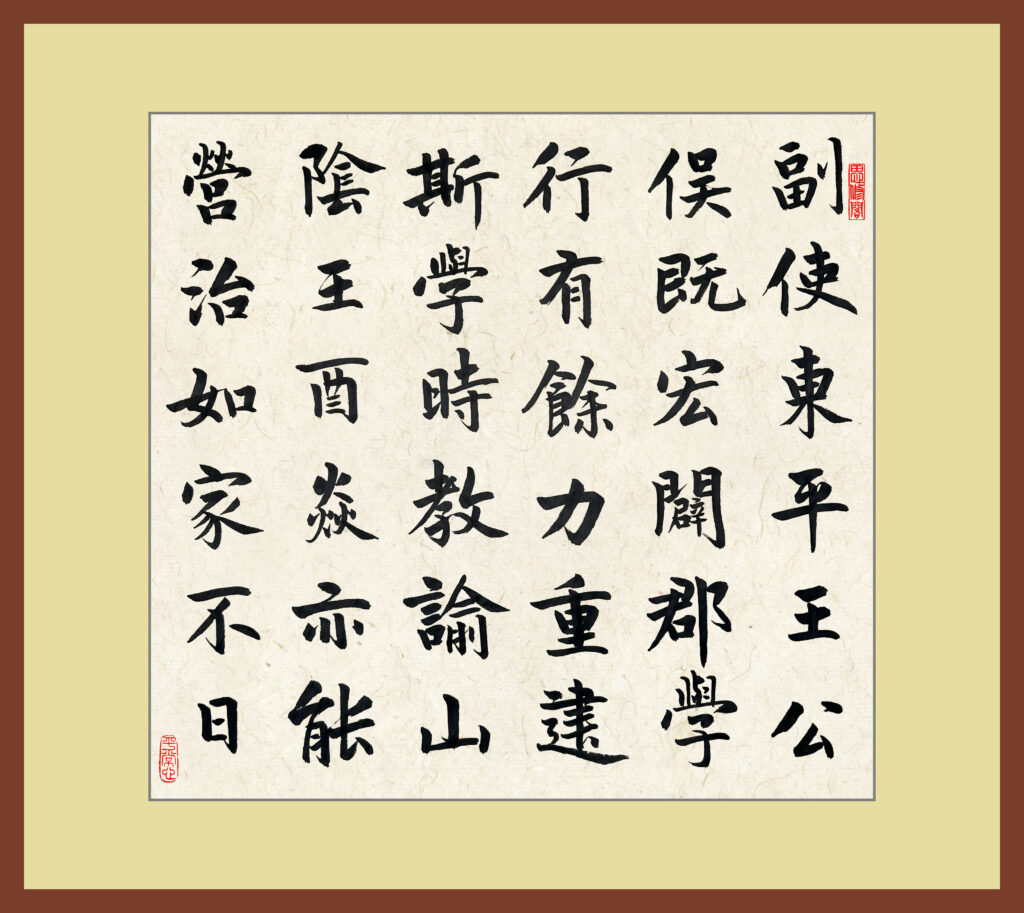 思修閣
副使東平王公
俣既宏闢郡學
行有餘力重建
斯學時教諭山
陰王酉焱亦能
營治如家不日
平常心